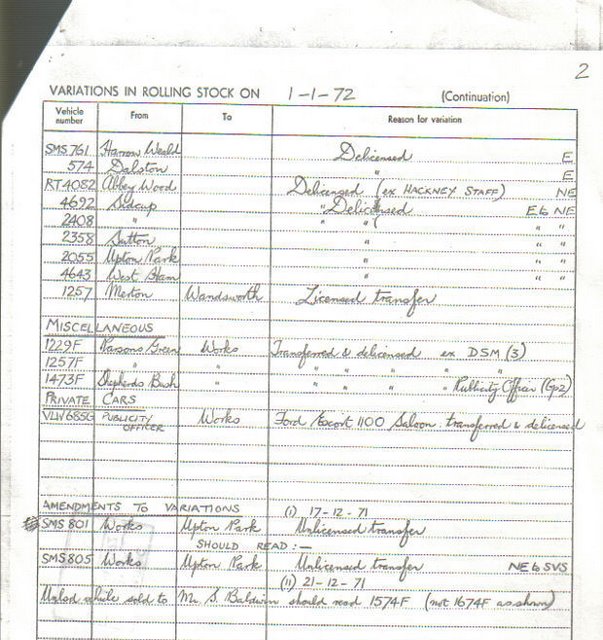 2
VARIATIONS IN ROLLING STOCK ON 1-1-72 (Continuation)
Vehicle number From To Reason for variation
SMS 761 Harrow Weald Delicensed E
574 Dalston " E
RT 4082 Abbey Wood Delicensed (ex HACKNEY STAFF) NE
4692 Sidcup " Delicensed E6 NE
2408 " " ( " "
2358 Sutton " " "
2055 Upton Park " " "
4643 West Ham " " "
1257 Merton Wandsworth Licensed transfer
MISCELLANEOUS
1229F Parsons Green Works Transferred & delicensed ex DSM (3)
1257F " " " " " " "
1473F Shepherds Bush " " " " " Publicity Officer (Gp2)
PRIVATE CARS
VLW 685G PUBLICITY OFFICER Works Ford Escort 1100 Saloon transferred & delicensed
AMENDMENTS TO VARIATIONS (i) 17-12-71
SMS 801 Works Upton Park Unlicensed transfer
SHOULD READ:—
SMS 805 Works Upton Park Unlicensed transfer NE 6 SVS
(ii) 21-12-71
vehicle sold to Mr. S. Baldwin should read 1574F (not 1674F as shown)